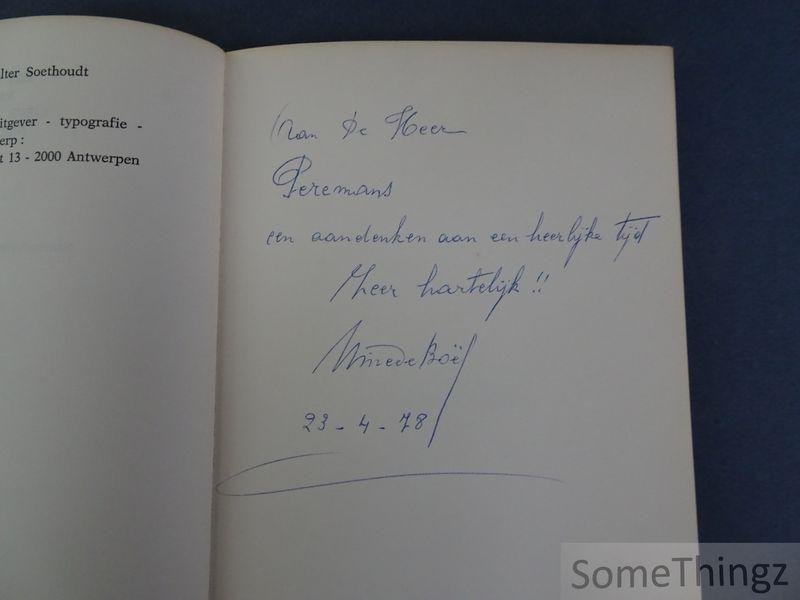 lter Soethoudt
itgever - typografie -
erp :
t 13 - 2000 Antwerpen
Aan De Heer
Peremans
een aandenken aan een heerlijke tijd
Zeer hartelijk !!
23 - 4 - 78
SomeThingz